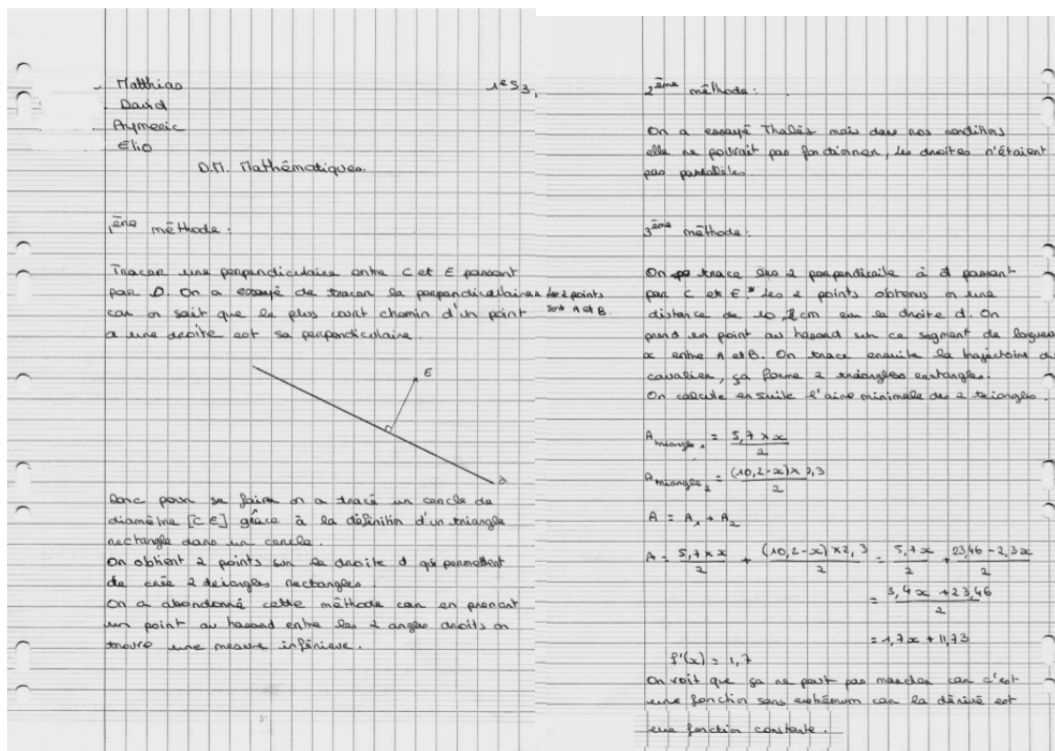 Matthias 1°S3
David
Aymeric
Elio
D.M. Mathématiques.
1ème méthode :
Tracer une perpendiculaire entre C et E passant
par D. On a essayé de tracer la perpendiculaire
car on sait que le plus court chemin d'un point
a une droite est sa perpendiculaire.
E
d
Donc pour se faire on a tracé un cercle de
diamètre [CE] grâce à la définition d'un triangle
rectangle dans un cercle.
On obtient 2 points sur la droite d qui permettent
de crée 2 triangles rectangles.
On a abandonné cette méthode car en prenant
un point au hasard entre les 2 angles droits on
trouve une mesure inférieure.
2ème méthode :
On a essayé Thalès mais dans nos conditions
elle ne pouvait pas fonctionner, les droites n'étaient
pas parallèles.
3ème méthode :
On trace les 2 à d passant
par C et E.* Les 2 points obtenus on une
* les 2 points
sont A et B.
distance de 10,2cm sur la droite d. On
prend un point au hasard sur ce segment de longueur
x entre A et B. On trace ensuite la trajectoire du
cavalier, ça forme 2 triangles rectangles.
On calcule ensuite l'aire minimale des 2 triangles.
A triangle 1 = 5,7 × x / 2
A triangle 2 = (10,2-x) × 2,3 / 2
A = A1 + A2
A = 5,7 × x / 2 + (10,2-x) × 2,3 / 2 = 5,7x / 2 + 23,46 - 2,3x / 2
= 3,4x + 23,46 / 2
= 1,7x + 11,73
f'(x) = 1,7
On voit que ça ne peut pas marcher car c'est
une fonction sans extrêmum car la dérivé est
une fonction constante.